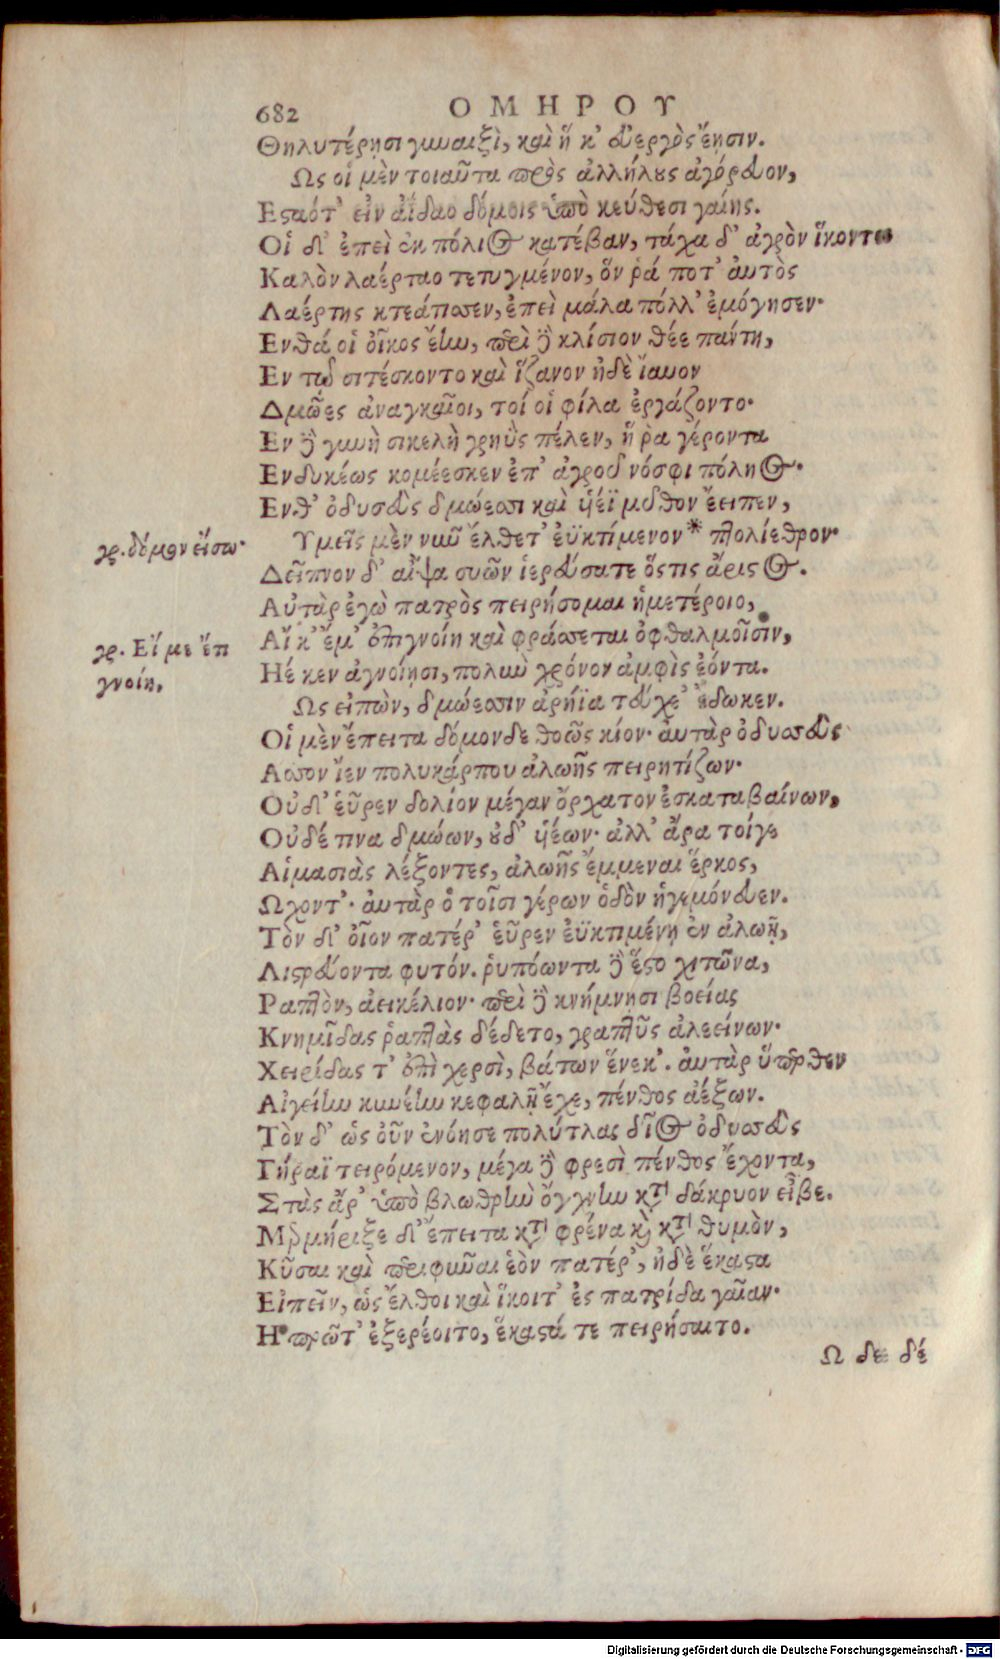 682 ΟΜΗΡΟΥ
Θηλυτέρῃσι γυναιξὶ, καὶ ἥ κ' εὐεργὸς ἔῃσιν.
Ως οἱ μὲν τοιαῦτα πρὸς ἀλλήλους ἀγόρευον,
Εςαότ' εἰν ἀΐδαο δόμοις ὑπὸ κεύθεσι γαίης.
Οἱ δ' ἐπεὶ ἐκ πόλιος κατέβαν, τάχα δ' ἀγρὸν ἵκοντο
Καλὸν λαέρταο τετυγμένον, ὅν ῥά ποτ' αὐτὸς
Λαέρτης κτεάτισσεν, ἐπεὶ μάλα πόλλ' ἐμόγησεν·
Ενθά οἱ οἶκος ἔην, περὶ δὲ κλίσιον θέε πάντῃ,
Εν τῷ σιτέσκοντο καὶ ἵζανον ἠδὲ ἴαυον
Δμῶες ἀναγκαῖοι, τοί οἱ φίλα ἐργάζοντο·
Εν δὲ γυνὴ σικελὴ γρηῢς πέλεν, ἥ ῥα γέροντα
Ενδυκέως κομέεσκεν ἐπ' ἀγροῦ νόσφι πόληος·
Ενθ' ὀδυσεὺς δμώεσσι καὶ υἱέϊ μῦθον ἔειπεν,
γρ. δόμον εἴσω· Υμεῖς μὲν νῦν ἔλθετ' ἐϋκτίμενον * πτολίεθρον·
Δεῖπνον δ' αἶψα συῶν ἱερεύσατε ὅςτις ἄριςος.
Αὐτὰρ ἐγὼ πατρὸς πειρήσομαι ἡμετέροιο,
γρ. Εἴ με ἔπι Αἴ κ' ἔμ' ἐπιγνοίη καὶ φράσσεται ὀφθαλμοῖσιν,
γνοίη. Ηέ κεν ἀγνοίῃσι, πολὺν χρόνον ἀμφὶς ἐόντα.
Ως εἰπὼν, δμώεσσιν ἀρήϊα τεύχε' ἔδωκεν.
Οἱ μὲν ἔπειτα δόμονδε θοῶς κίον· αὐτὰρ ὀδυσσεὺς
Ασσον ἴεν πολυκάρπου ἀλωῆς πειρητίζων·
Οὐδ' εὗρεν δολίον μέγαν ὄρχατον ἐσκαταβαίνων,
Οὐδέ τινα δμώων, οὐδ' υἱέων· ἀλλ' ἄρα τοίγε
Αἱμασιὰς λέξοντες, ἀλωῆς ἔμμεναι ἕρκος,
Ωχοντ'· αὐτὰρ ὁ τοῖσι γέρων ὁδὸν ἡγεμόνευεν.
Τὸν δ' οἶον πατέρ' εὗρεν ἐϋκτιμένῃ ἐν ἀλωῇ,
Λιςρεύοντα φυτόν. ῥυπόωντα δὲ ἕςο χιτῶνα,
Ραπτὸν, ἀεικέλιον· περὶ δὲ κνήμῃσι βοείας
Κνημῖδας ῥαπτὰς δέδετο, γραπτῦς ἀλεείνων·
Χειρίδας τ' ἐπὶ χερσὶ, βάτων ἕνεκ'. αὐτὰρ ὕπερθεν
Αἰγείην κυνέην κεφαλῇ ἔχε, πένθος ἀέξων.
Τὸν δ' ὡς οὖν ἐνόησε πολύτλας δῖος ὀδυσσεὺς
Γήραϊ τειρόμενον, μέγα δὲ φρεσὶ πένθος ἔχοντα,
Στὰς ἄρ' ὑπὸ βλωθρὴν ὄγχνην κατὰ δάκρυον εἶβε.
Μερμήριξε δ' ἔπειτα κατὰ φρένα καὶ κατὰ θυμὸν,
Κῦσαι καὶ περιφῦναι ἑὸν πατέρ', ἠδὲ ἕκαςα
Εἰπεῖν, ὡς ἔλθοι καὶ ἵκοιτ' ἐς πατρίδα γαῖαν·
Η πρῶτ' ἐξερέοιτο, ἕκαςά τε πειρήσαιτο.
Ω δε δέ
Digitalisierung gefördert durch die Deutsche Forschungsgemeinschaft - DFG